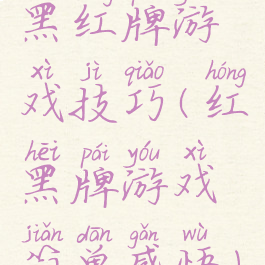 黑红牌游
xì jì qiǎo hóng
戏技巧(红
hēi pái yóu xì
黑牌游戏
jiǎn dān gǎn wù
简单感悟)